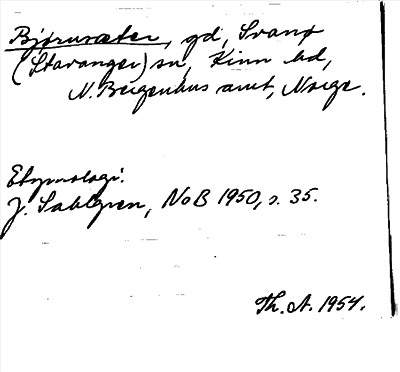 Bjørnsæter, gd, Svanø
(Stavanger) sn, Kinn hd,
N. Bergenhus amt, Norge.
Etymologi.
J. Sahlgren, NoB 1950, s. 35.
Th. A. 1954.